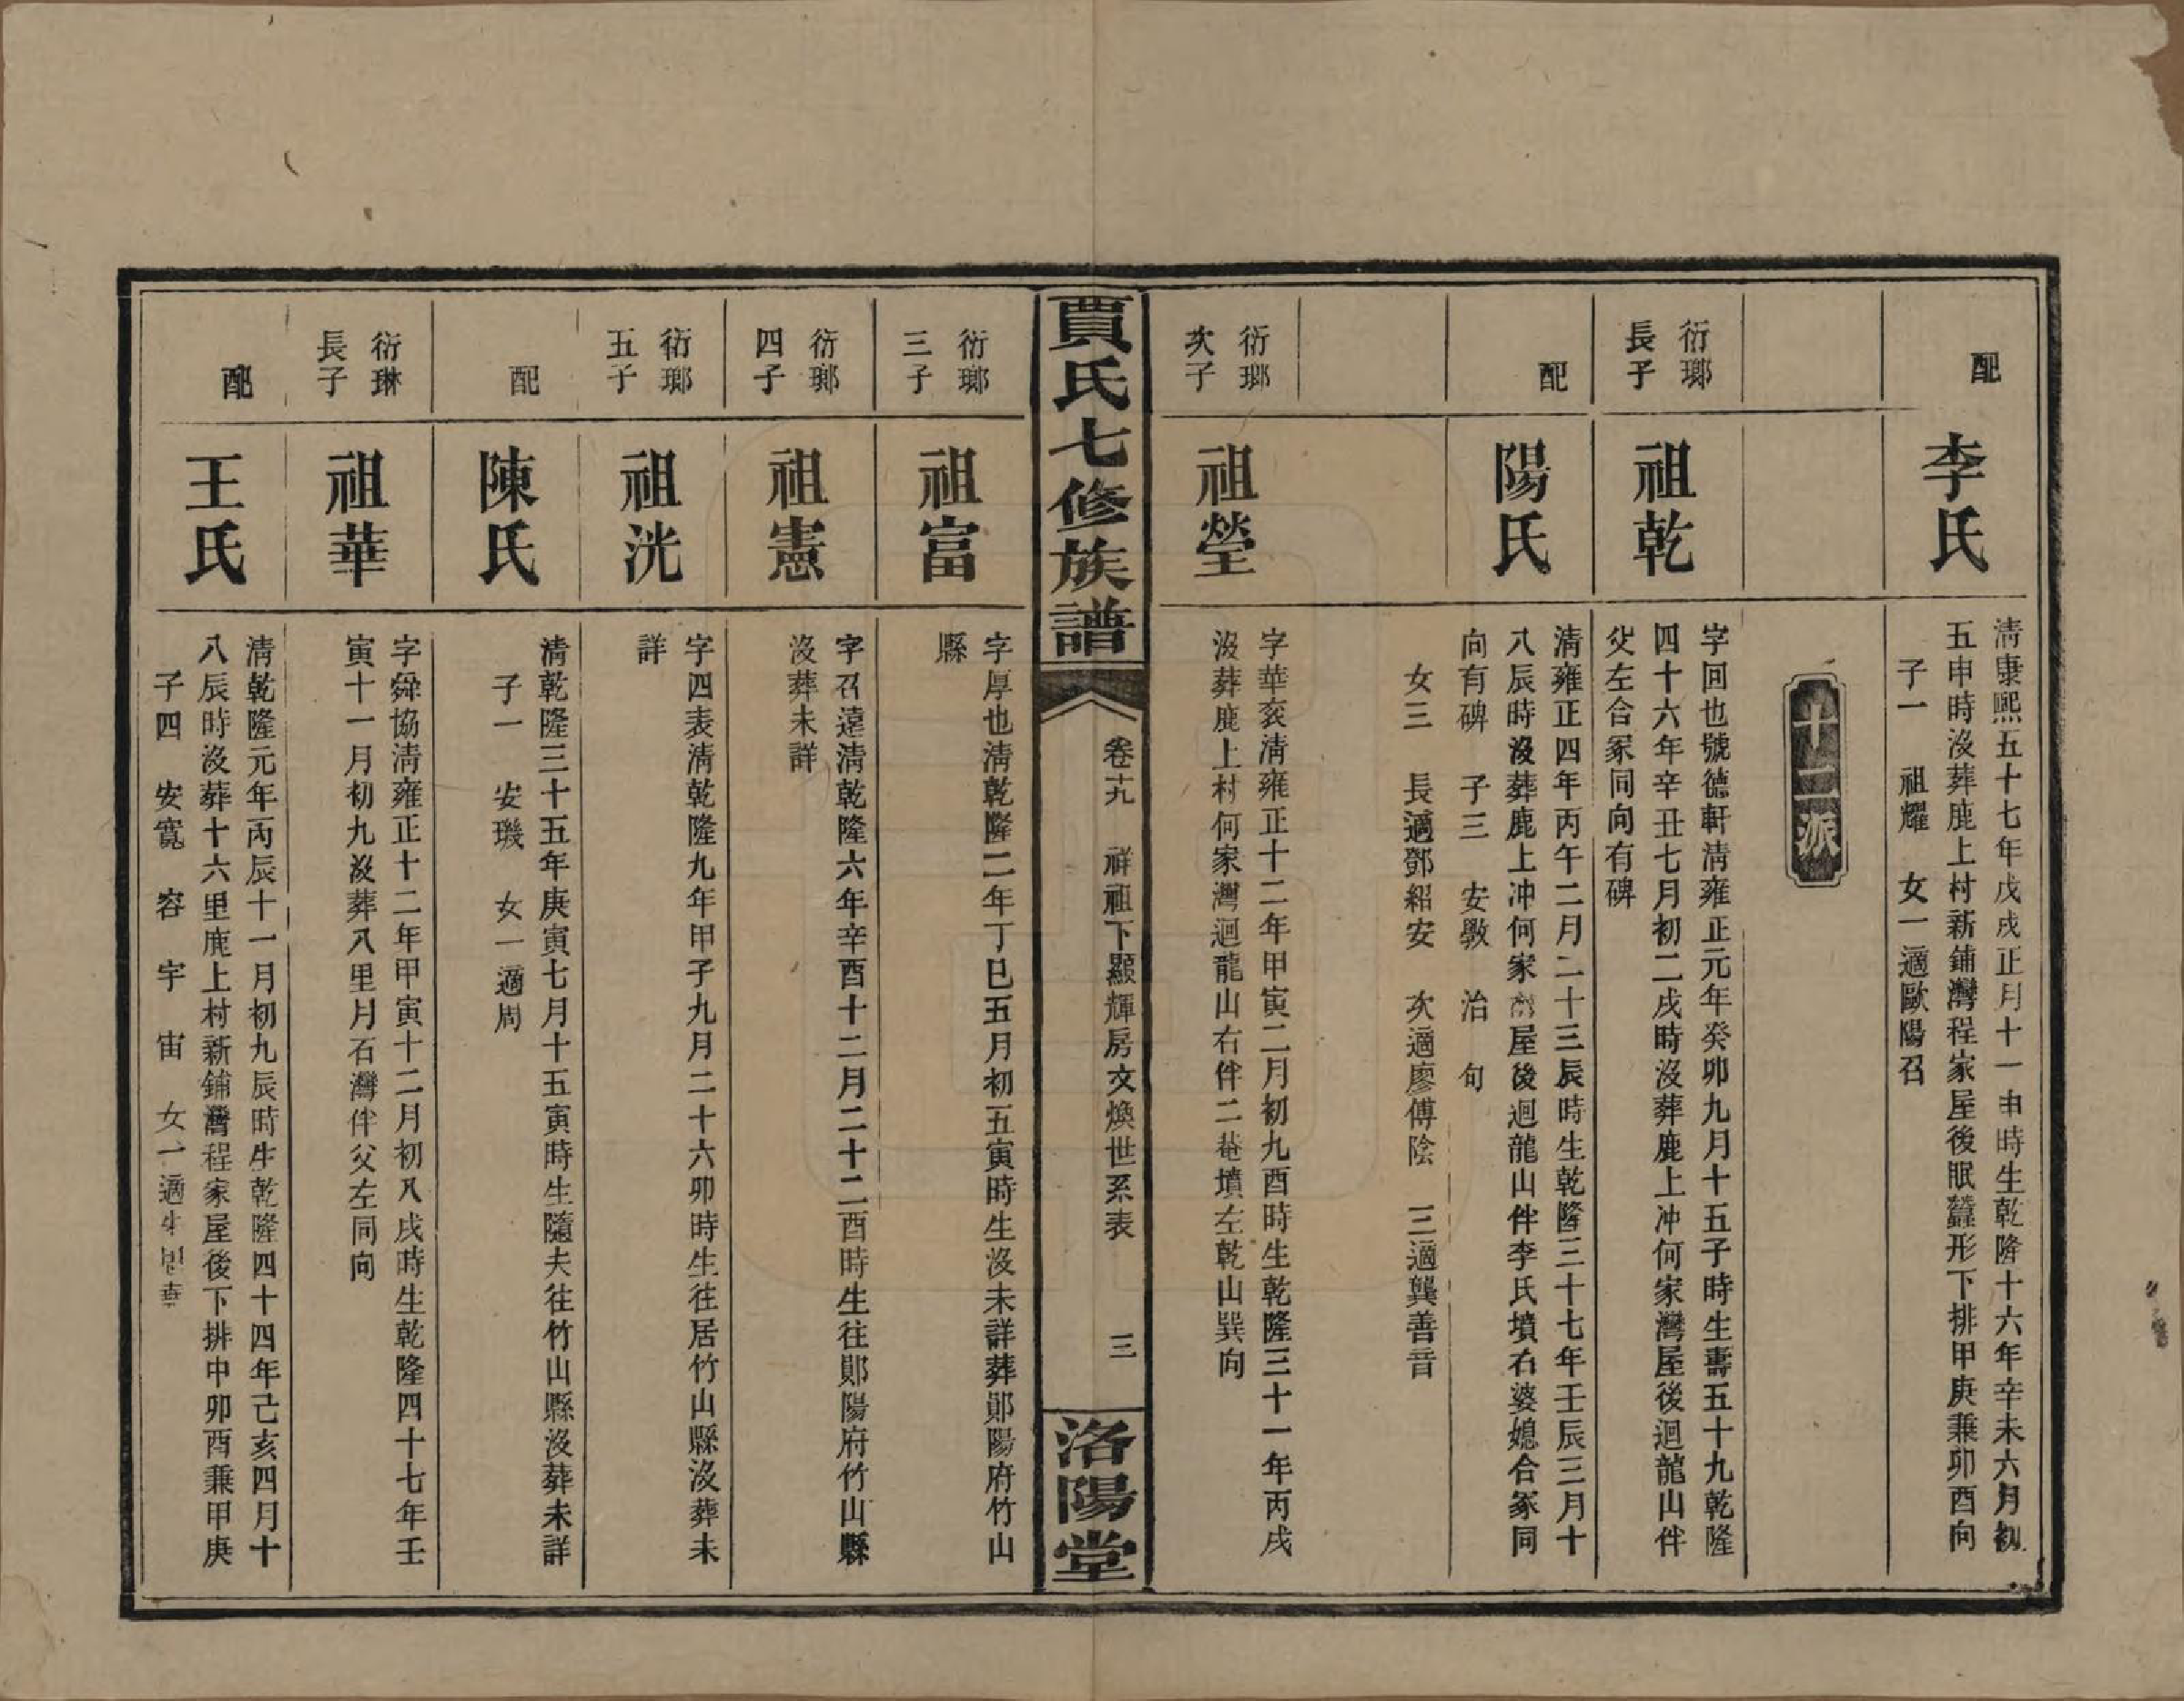 配
李氏
清康熙五十七年戊戌正月十一申時生乾隆十六年辛未六月初
五申時沒葬鹿上村新鋪灣程家屋後眠蠶形下排甲庚兼卯酉向
子一　祖耀　女一適歐陽召
十二派
衍瑯
長子
祖乾
字回也號德軒清雍正元年癸卯九月十五子時生壽五十九乾隆
四十六年辛丑七月初二戌時沒葬鹿上冲何家灣屋後迴龍山伴
父左合冢同向有碑
配
陽氏
清雍正四年丙午二月二十三辰時生乾隆三十七年壬辰三月十
八辰時沒葬鹿上冲何家灣屋後迴龍山伴李氏墳右婆媳合冢同
向有碑　子三　安斆　治　旬
女三　長適鄧紹安　次適廖傅陰　三適龔善音
衍瑯
次子
祖瑩
字華衮清雍正十二年甲寅二月初九酉時生乾隆三十一年丙戌
沒葬鹿上村何家灣迴龍山右伴二巷墳左乾山巽向
賈氏七修族譜
卷十九　祥祖下顯輝房文煥世系表　三
洛陽堂
衍瑯
三子
祖富
字厚也清乾隆二年丁巳五月初五寅時生沒未詳葬鄖陽府竹山
縣
衍瑯
四子
祖憲
字召遠清乾隆六年辛酉十二月二十二酉時生往鄖陽府竹山縣
沒葬未詳
衍瑯
五子
祖洸
字四表清乾隆九年甲子九月二十六卯時生往居竹山縣沒葬未
詳
配
陳氏
清乾隆三十五年庚寅七月十五寅時生隨夫往竹山縣沒葬未詳
子一　安璣　女一適周
衍琳
長子
祖華
字舜協清雍正十二年甲寅十二月初八戌時生乾隆四十七年壬
寅十一月初九沒葬八里月石灣伴父左同向
配
王氏
清乾隆元年丙辰十一月初九辰時生乾隆四十四年己亥四月十
八辰時沒葬十六里鹿上村新鋪灣程家屋後下排申卯酉兼甲庚
子四　安寬　容　宇　宙　女一適